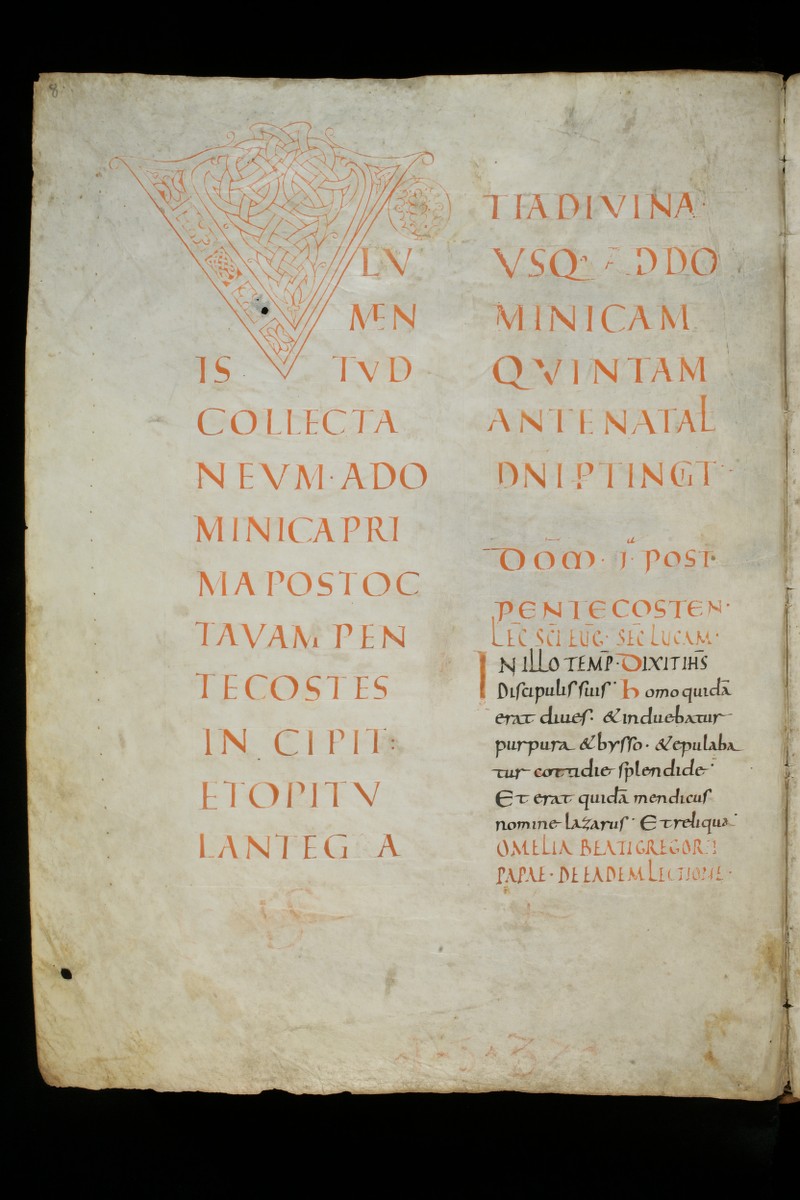 8
VOLV
MEN
ISTVD
COLLECTA
NEVM·ADO
MINICAPRI
MAPOSTOC
TAVAM PEN
TECOSTES
INCIPIT:
ETOPITV
LANTEG A
TIADIVINA·
VSQ· ADDO
MINICAM
QVINTAM
ANTENATAL
DNI PTINGT·
DOM̅· I· POST·
PENTECOSTEN·
LEC̅ SC̅I EUG· SEC̅ LUCAM·
IN ILLO TEMP̅·DIXIT IHS̅
Discipulis suis· homo quidā
erat diues· & induebatur
purpura & bysso· & epulaba
tur cottidie splendide·
Et erat quidā mendicus
nomine lazarus· Et reliqua·
OMELIA BEATI GREGORII
PAPAE· DE EADEM LECTIONE·